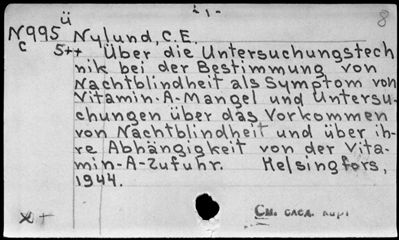 ü - 1 -
8
N995 Nylund, C.E.
c 5++ Über die Untersuchungstech
nik bei der Bestimmung von
Nachtblindheit als Symptom von
Vitamin-A-Mangel und Untersu-
chungen über das Vorkommen
von Nachtblindheit und über ih-
re Abhängigkeit von der Vita-
min-A-Zufuhr. Helsingfors,
1944.
См. сзса.